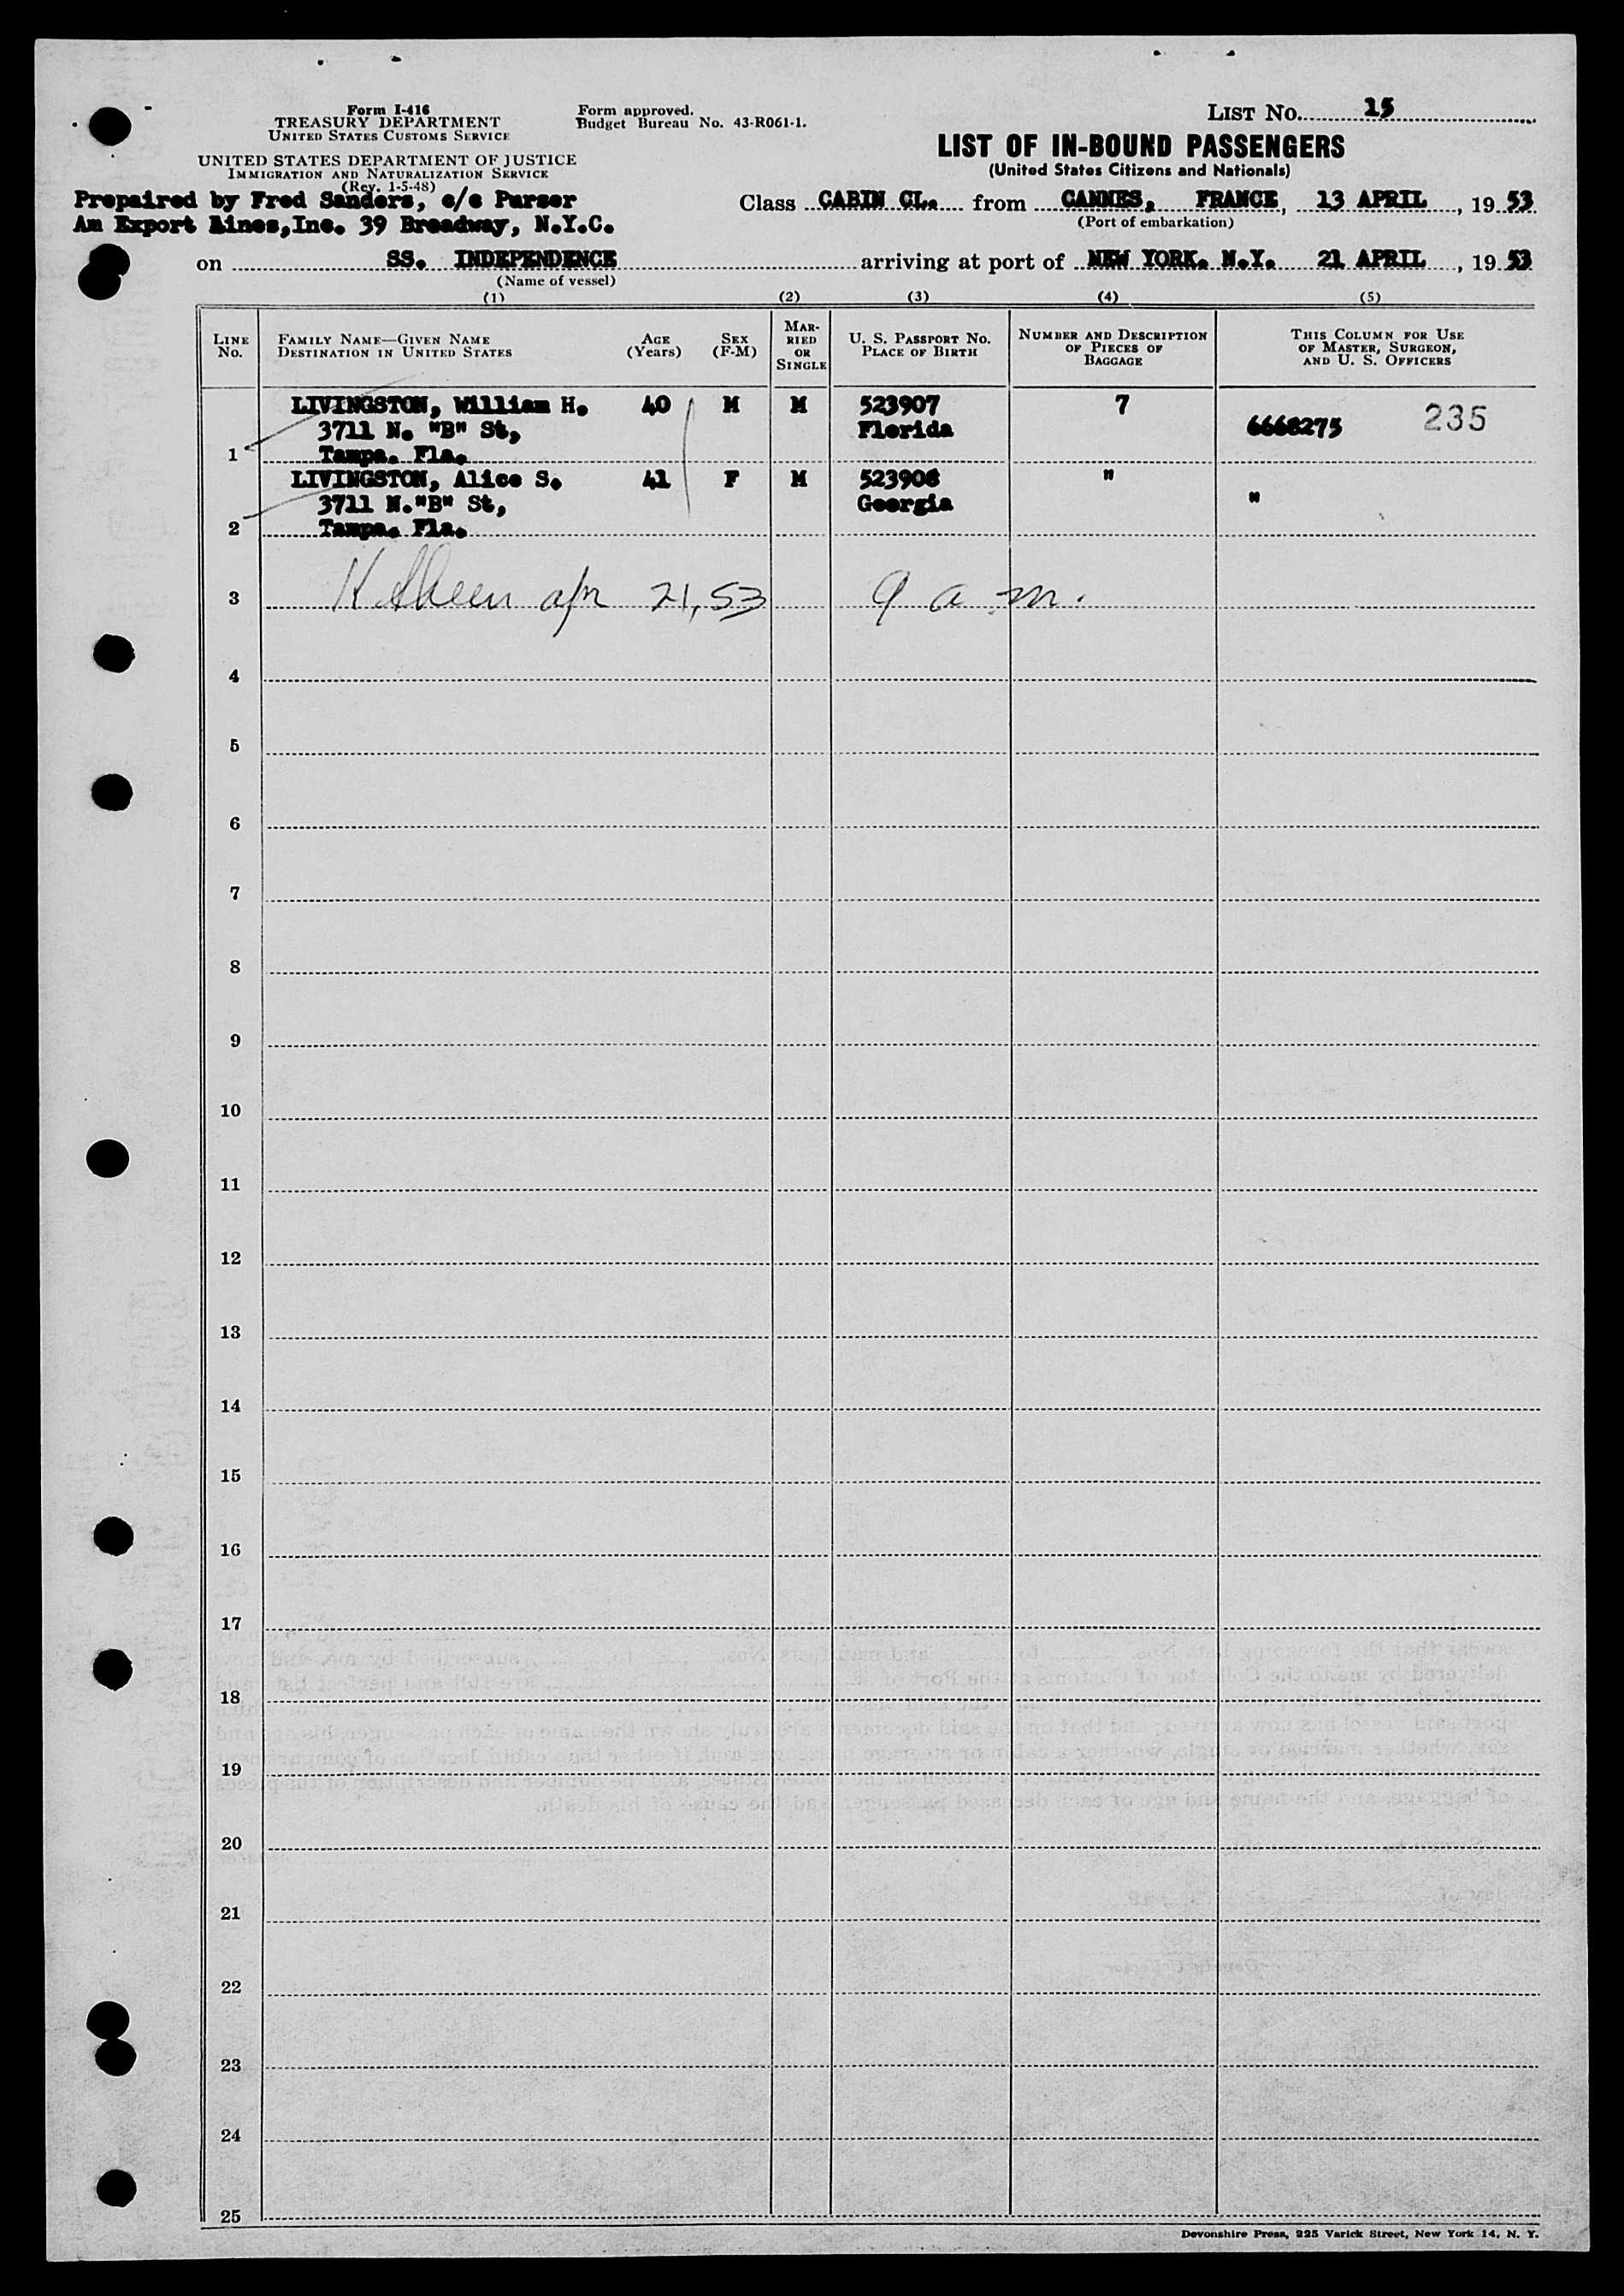 Form I-416
TREASURY DEPARTMENT
UNITED STATES CUSTOMS SERVICE
UNITED STATES DEPARTMENT OF JUSTICE
IMMIGRATION AND NATURALIZATION SERVICE
(Rev. 1-5-48)
Form approved.
Budget Bureau No. 43-R061-1.
LIST NO. 15
LIST OF IN-BOUND PASSENGERS
(United States Citizens and Nationals)
Prepaired by Fred Sanders, c/o Purser
Am Export Lines,Inc. 39 Broadway, N.Y.C.
Class CABIN CL. from CANNES, FRANCE, 13 APRIL, 19 53
(Port of embarkation)
on SS. INDEPENDENCE arriving at port of NEW YORK. N.Y. 21 APRIL, 19 53
(Name of vessel)
(1) (2) (3) (4) (5)
LINE NO.
FAMILY NAME—GIVEN NAME
DESTINATION IN UNITED STATES
AGE (Years)
SEX (F-M)
MARRIED OR SINGLE
U. S. PASSPORT NO.
PLACE OF BIRTH
NUMBER AND DESCRIPTION OF PIECES OF BAGGAGE
THIS COLUMN FOR USE OF MASTER, SURGEON, AND U. S. OFFICERS
LIVINGSTON, William H. 40 M M 523907 7
3711 N. "B" St, Florida 6668275 235
1 Tampa. Fla.
LIVINGSTON, Alice S. 41 F M 523908 "
3711 N."B" St, Georgia "
2 Tampa. Fla.
3 21, 53 9 a m.
4
5
6
7
8
9
10
11
12
13
14
15
16
17
18
19
20
21
22
23
24
25
Devonshire Press, 225 Varick Street, New York 14, N. Y.